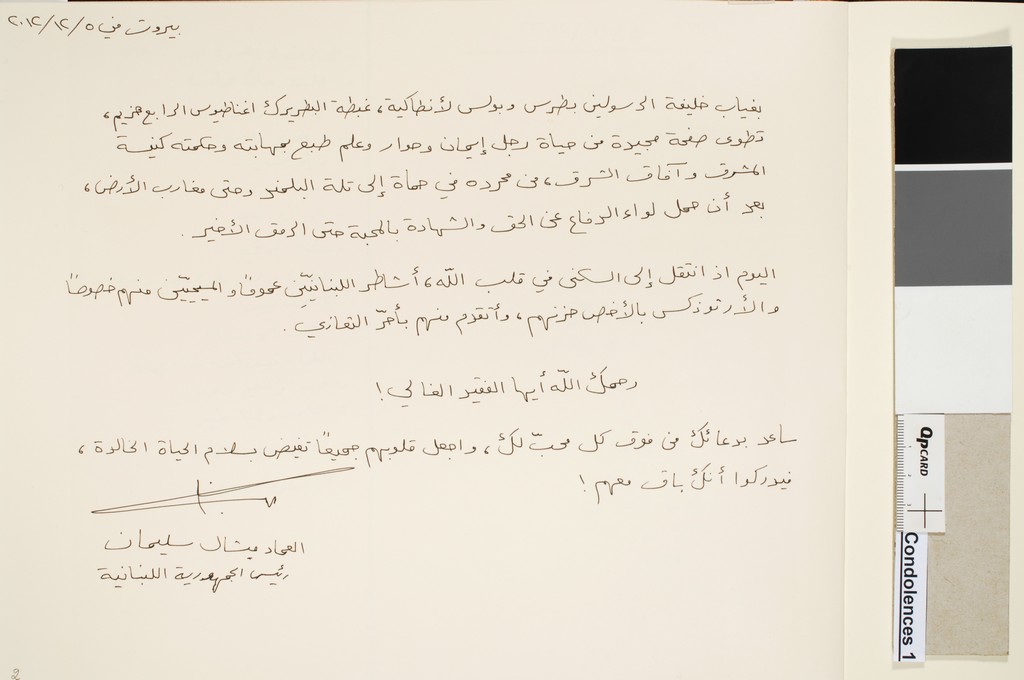 بيروت في ٥/١٢/٢٠١٢
بغياب خليفة الرسولين بطرس وبولس لأنطاكية، غبطة البطريرك اغناطيوس الرابع هزيم،
تطوى صفحة مجيدة من حياة رجل إيمان وحوار وعلم طبع بمهابته وحكمته كنيسة
المشرق وآفاق الشرق، من محرده في حماة إلى تلة البلمند وحتى مغارب الأرض،
بعد أن حمل لواء الدفاع عن الحق والشهادة بالمحبة حتى الرمق الأخير.
اليوم اذ انتقل إلى السكنى في قلب اللّه، أشاطر اللبنانيّين عموفًا والمسيحيّين منهم خصوصًا
والأرثوذكس بالأخص حزنهم، وأتقدم منهم بأحرّ التعازي.
رحمك اللّه أيها الفقيد الغالي!
ساعد بدعائك من فوق كل محبّ لك، واجعل قلوبهم جميعًا تفيض بسلام الحياة الخالدة،
فيدركوا أنك باق معهم!
العماد ميشال سليمان
رئيس الجمهورية اللبنانية
QPCARD
Condolences 1